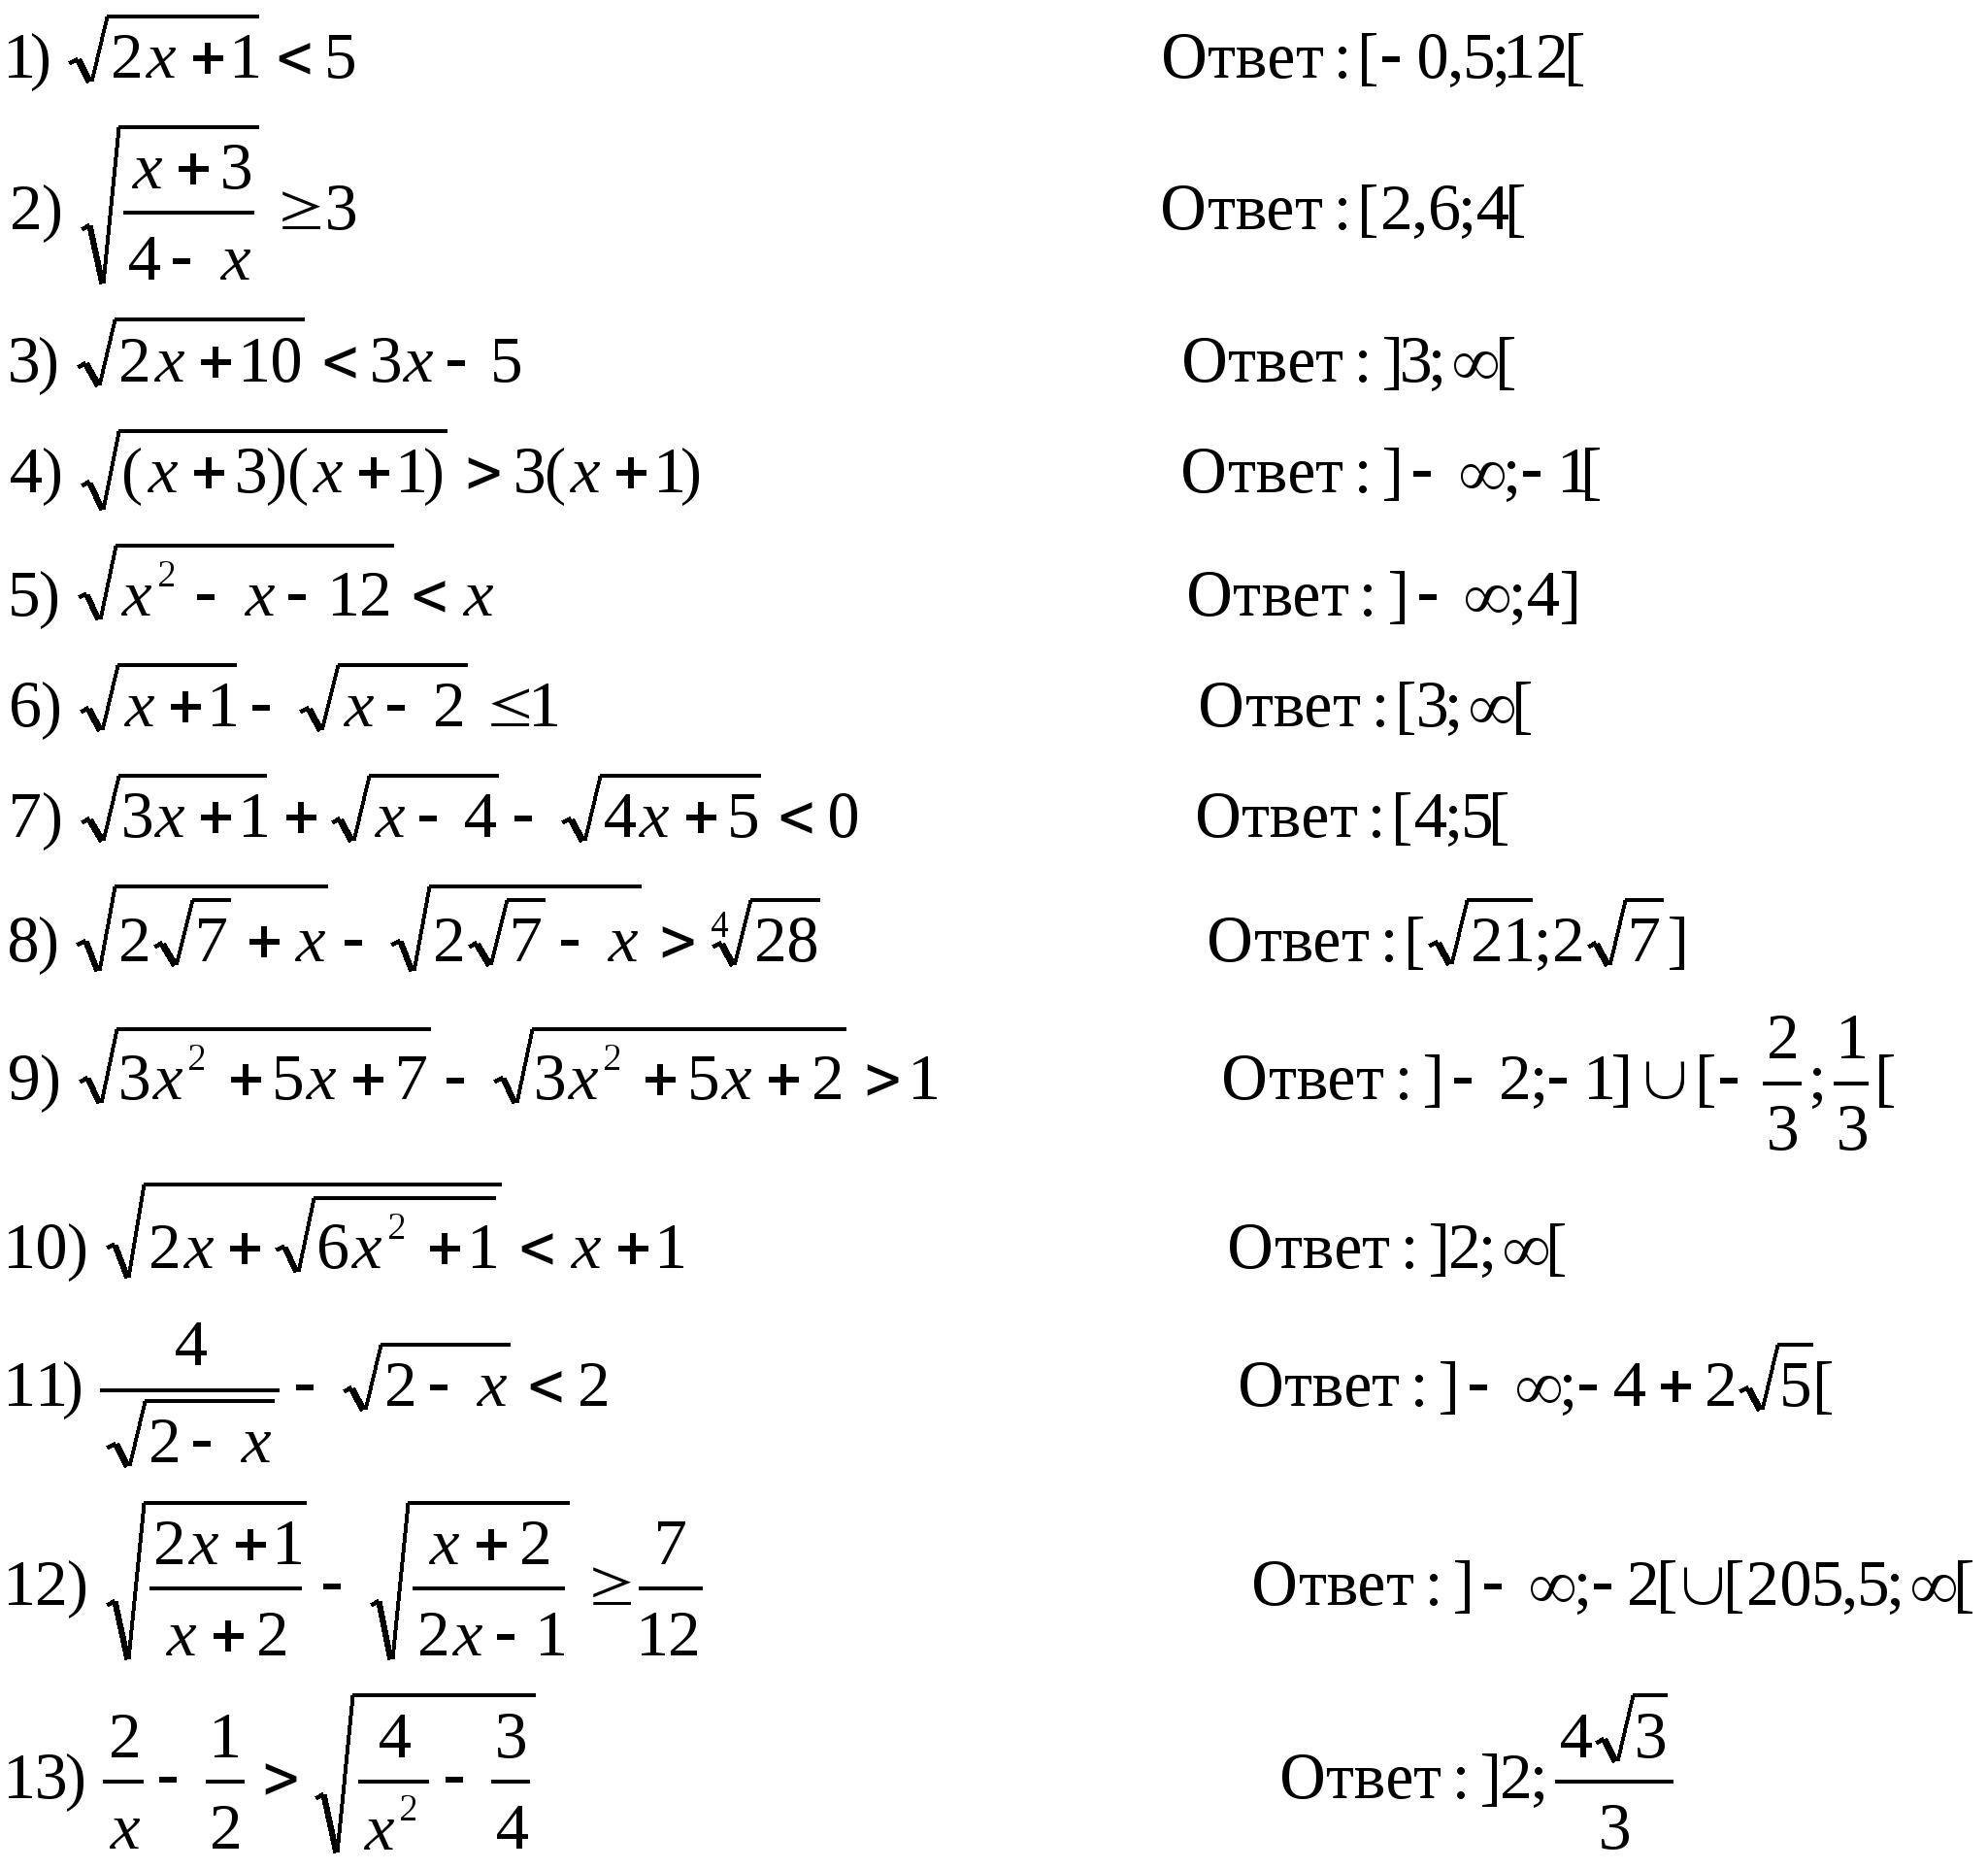 1) √(2x+1) < 5 Ответ : [- 0,5;12[
2) √((x+3)/(4- x)) ≥3 Ответ : [2,6;4[
3) √(2x+10) < 3x- 5 Ответ : ]3; ∞[
4) √((x+3)(x+1)) > 3(x+1) Ответ : ]- ∞;- 1[
5) √(x² - x- 12) < x Ответ : ]- ∞;4]
6) √(x+1) - √(x- 2) ≤1 Ответ : [3; ∞[
7) √(3x+1) + √(x- 4) - √(4x+5) < 0 Ответ : [4;5[
8) √(2√7 + x) - √(2√7 - x) > ⁴√28 Ответ : [√21;2√7]
9) √(3x² +5x+7) - √(3x² +5x+2) >1 Ответ : ]- 2;- 1]∪[- 2/3;1/3[
10) √(2x+√(6x² +1)) < x+1 Ответ : ]2; ∞[
11) 4/√(2- x) - √(2- x) < 2 Ответ : ]- ∞;- 4+2√5[
12) √((2x+1)/(x+2)) - √((x+2)/(2x- 1)) ≥7/12 Ответ : ]- ∞;- 2[∪[205,5; ∞[
13) 2/x - 1/2 > √(4/x² - 3/4) Ответ : ]2; 4√3/3